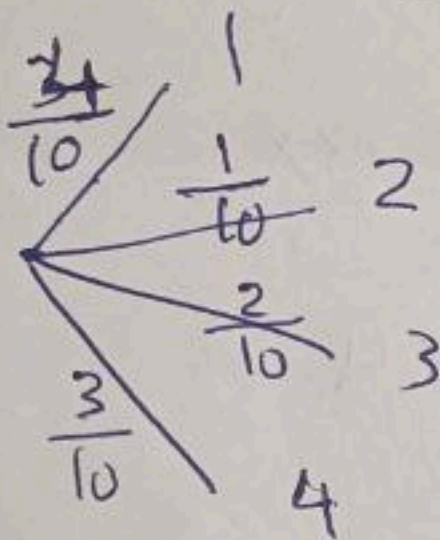 4/10 1
1/10 2
2/10 3
3/10 4